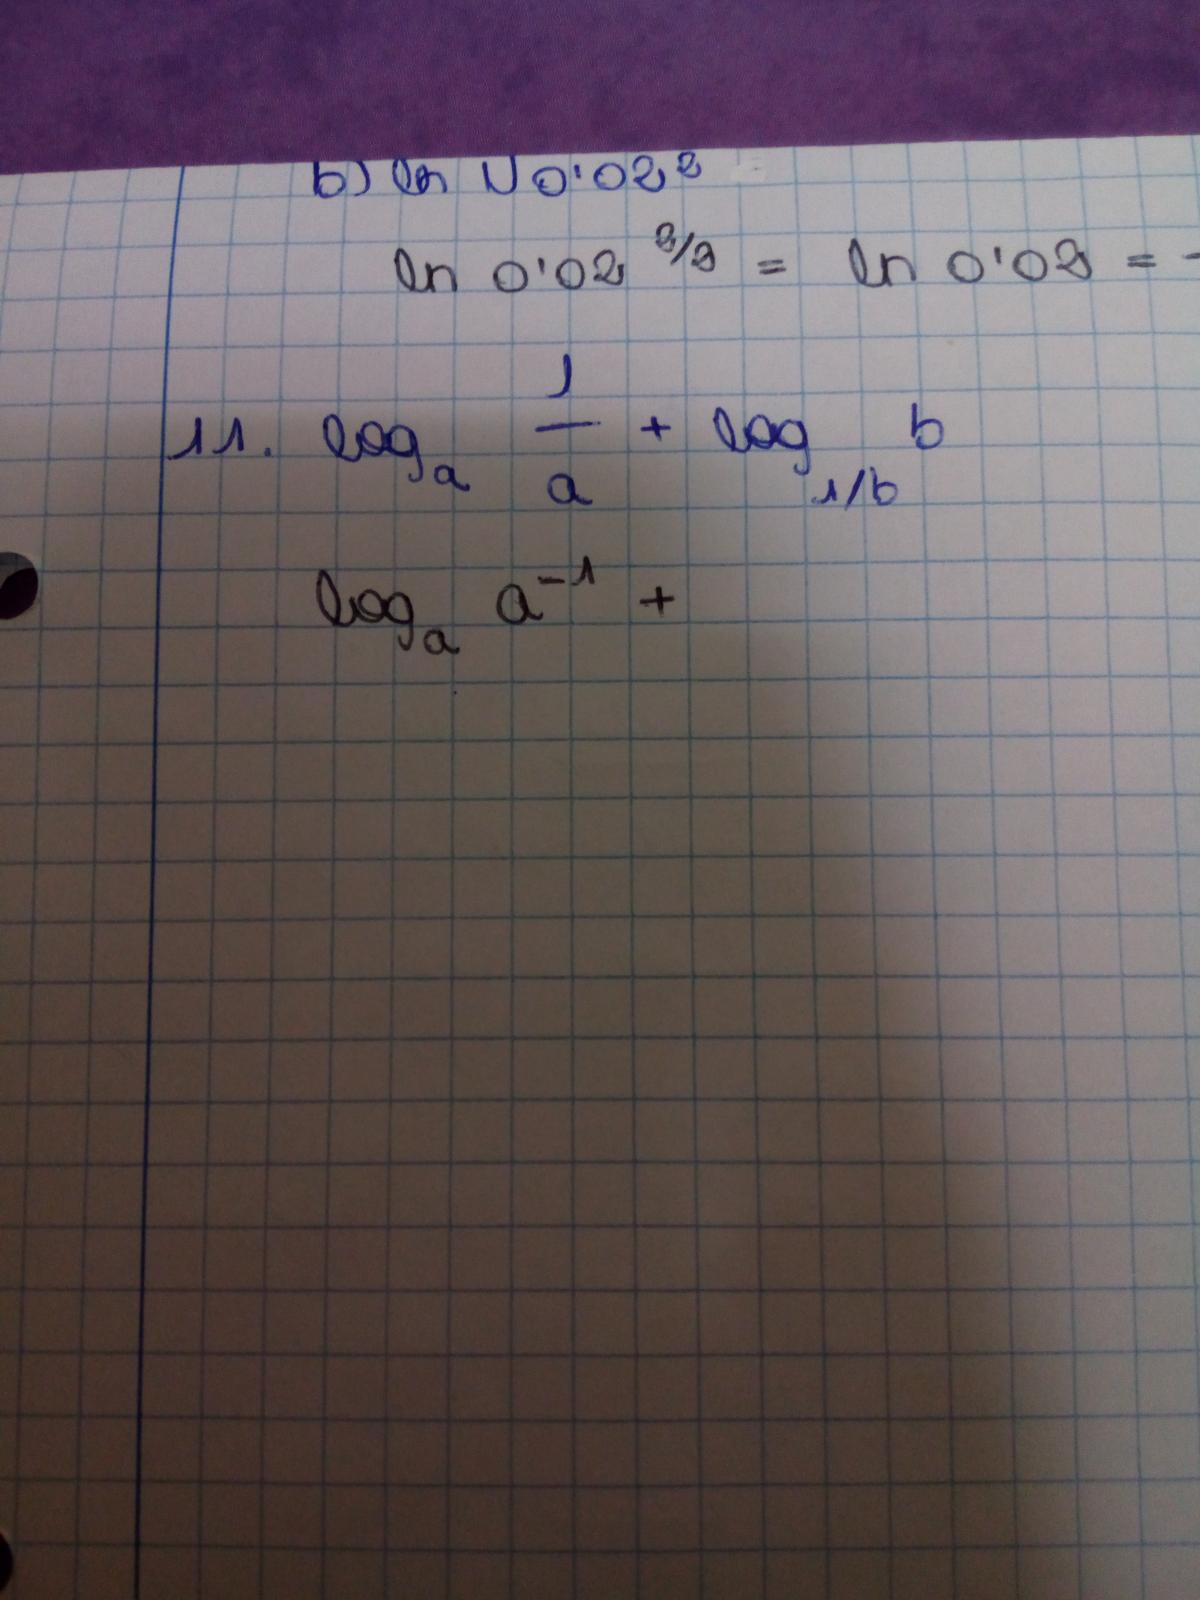 b) ln √0'02²
ln 0'02 ²/² = ln 0'02 = -
11. logₐ 1/a + log 1/b b
logₐ a⁻¹ +